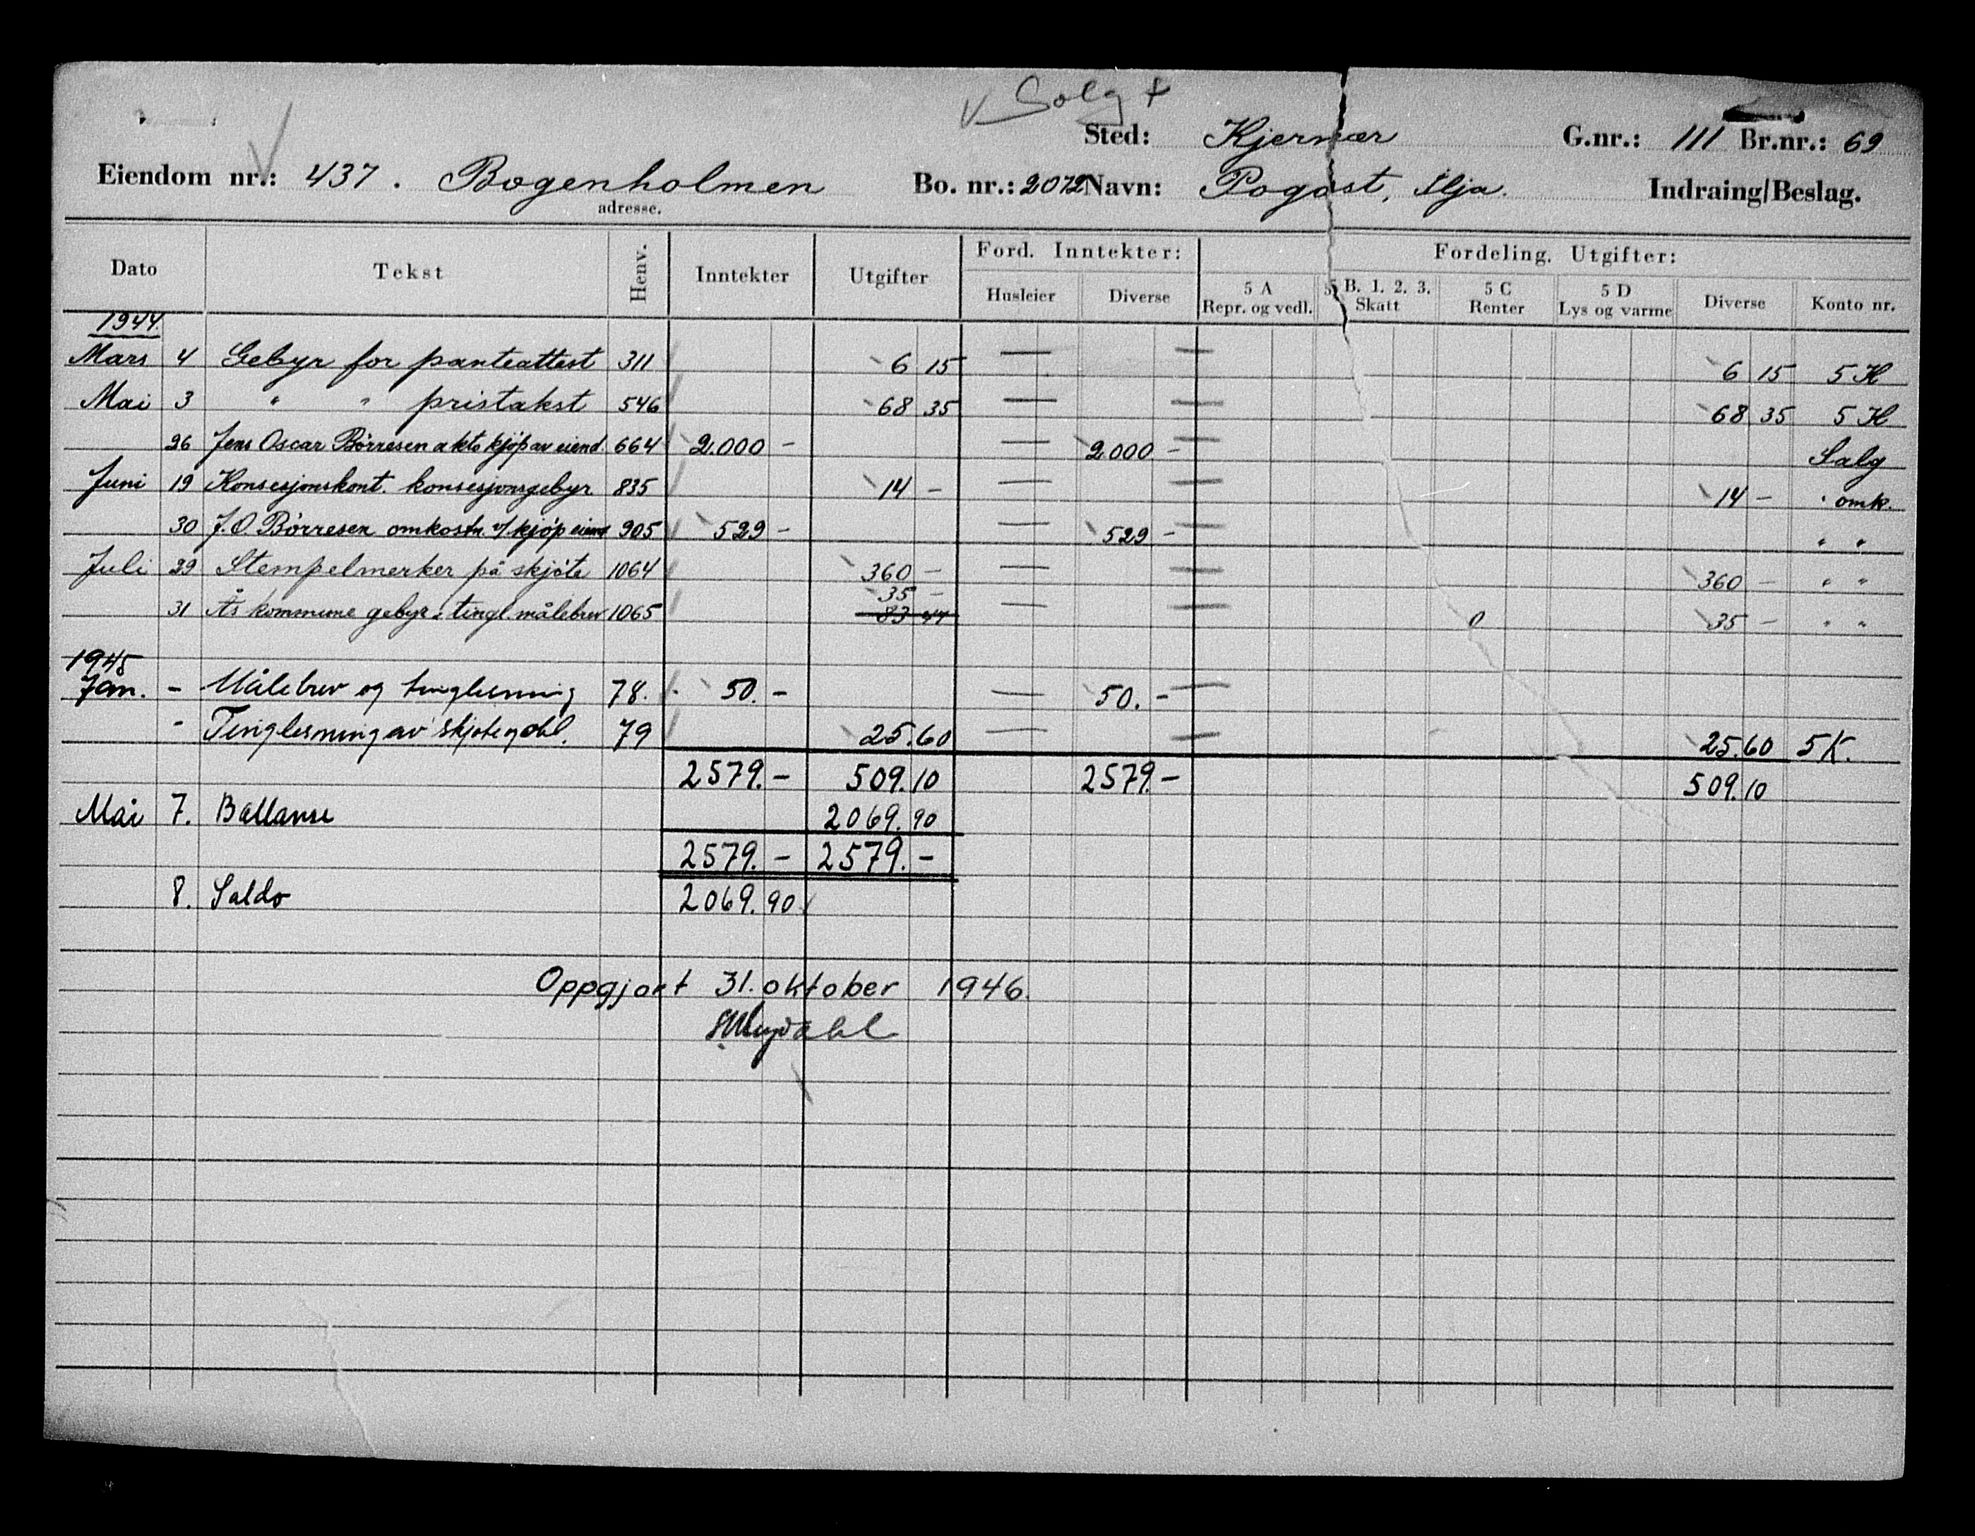 Solg +
Sted: Kjernær G.nr.: 111 Br.nr.: 69
Eiendom nr.: 437. Bogenholmen Bo. nr.: 2072 Navn: Pogost, Ilja. Indraing/Beslag.
adresse.
Dato Tekst Henv. Inntekter Utgifter Ford. Inntekter: Fordeling. Utgifter:
Husleier Diverse 5 A Repr. og vedl. 5 B. 1. 2. 3. Skatt 5 C Renter 5 D Lys og varme Diverse Konto nr.
1944
Mars 4 Gebyr for panteattest 311 6 15 — — 6 15 5 H
Mai 3 " " pristakst 546 68 35 — — 68 35 5 H
26 Jens Oscar Børresen akto kjøp av eiend. 664 2.000 - — 2.000 - — Salg
Juni 19 Konsesjonskont. konsesjonsgebyr 835 14 - — — 14 - " omk.
30 J.O. Børresen omkostn. v/ kjøp eiend 905 529 - — 529 - — " "
Juli 29 Stempelmerker på skjøte 1064 360 - — — 360 - " "
35 -
31 Ås kommune gebyr: tingl. målebrev 1065 83 47 — — 0 35 - " "
1945
Jan. - Målebrev og tinglesning 78. 50. - — 50. - —
- Tinglesning av skjøte og obl. 79 25.60 — — 25.60 5 K.
2579. - 509.10 2579. - 509.10
Mai 7. Ballanse 2069.90
2579. - 2579. -
8. Saldo 2069.90
Oppgjort 31. oktober 1946.